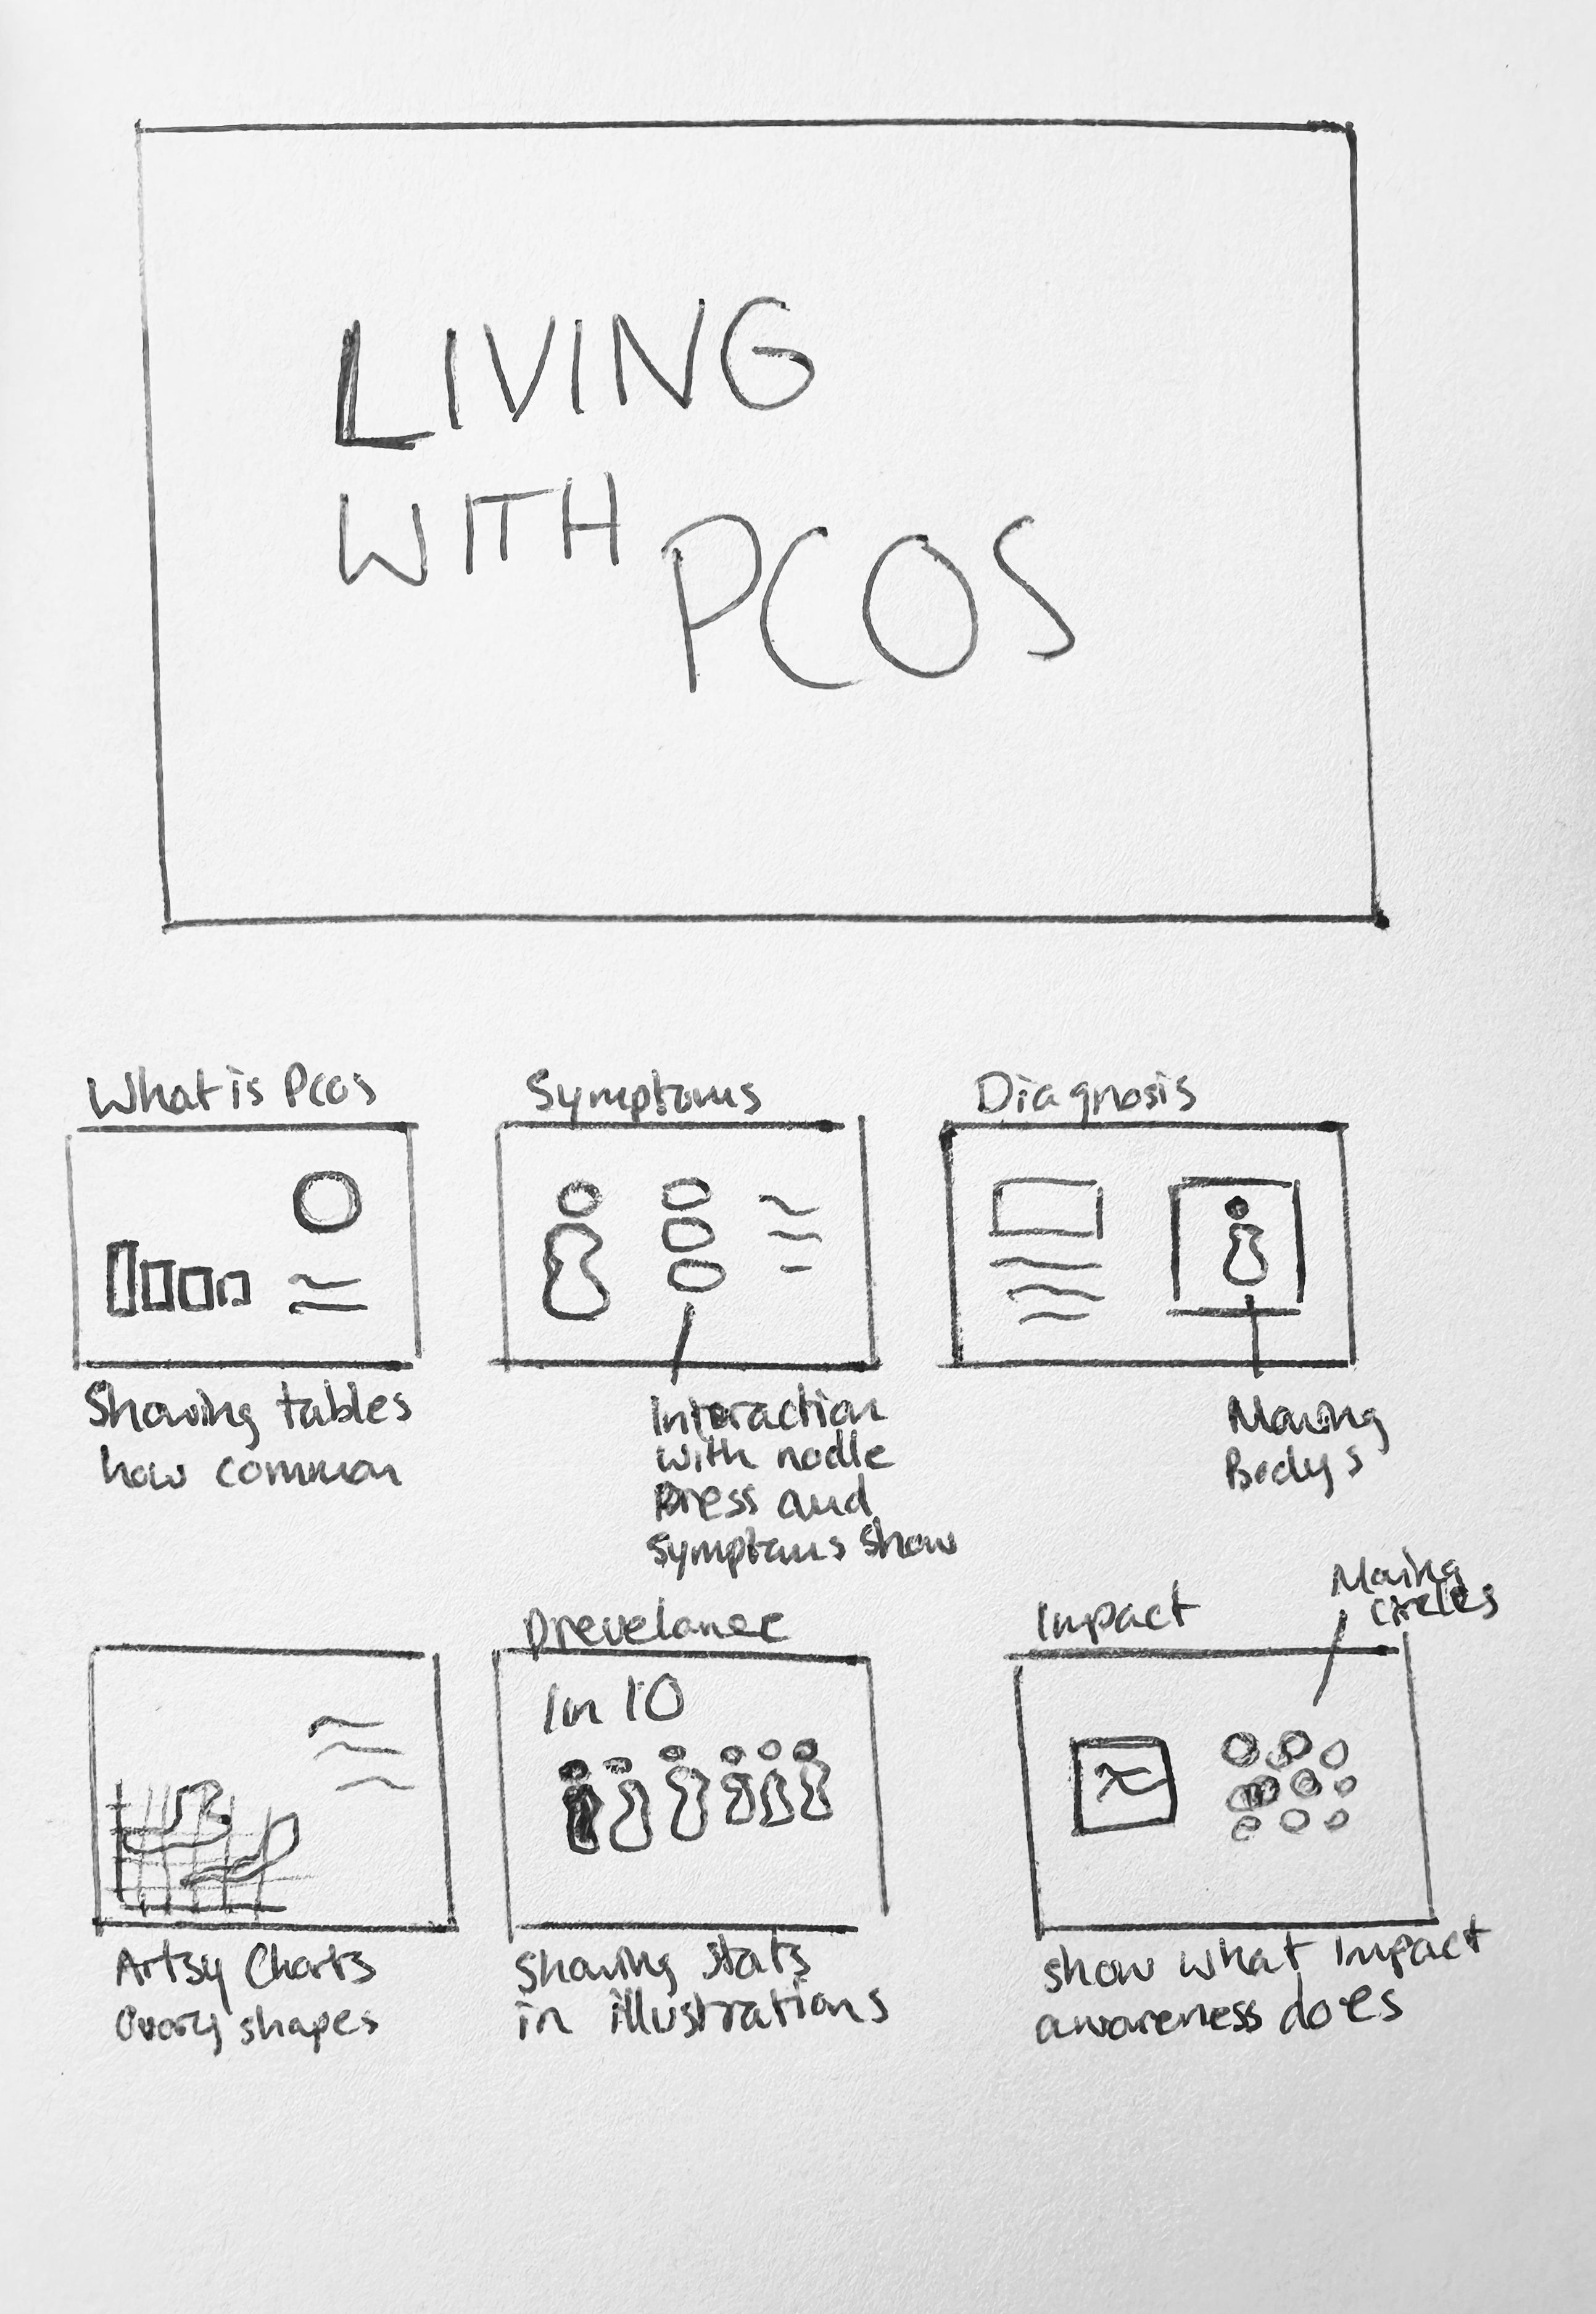 LIVING
WITH PCOS
What is Pcos
Symptoms
Diagnosis
Showing tables
how common
Interaction
with nodle
Press and
symptoms show
Moving
Bodys
Prevelance
1 in 10
Impact
Moving
circles
Artsy Charts
Ovary shapes
Showing stats
in illustrations
show what impact
awareness does